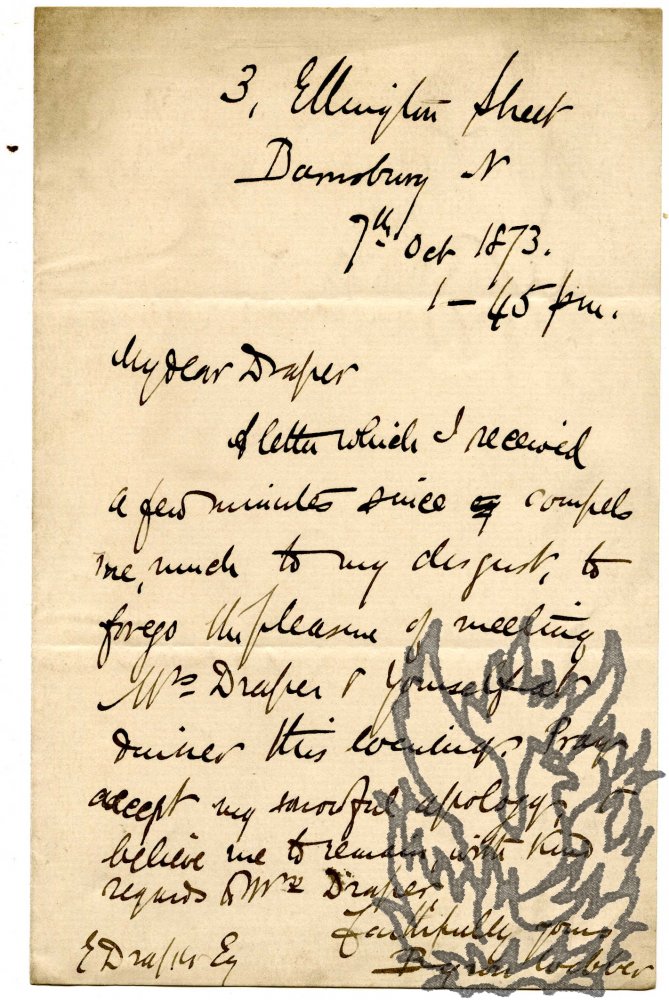 3, Ellington Street
Barnsbury N
7th Oct 1873.
1-45 pm.
My dear Draper
A letter which I received
a few minutes since compels
me, much to my disgust, to
forego the pleasure of meeting
Mrs Draper & Yourself at
dinner this evening. Pray
accept my sorrowful apology, &
believe me to remain, with kind
regards to Mrs Draper,
Faithfully yours
Byron Webber
E Draper Esq